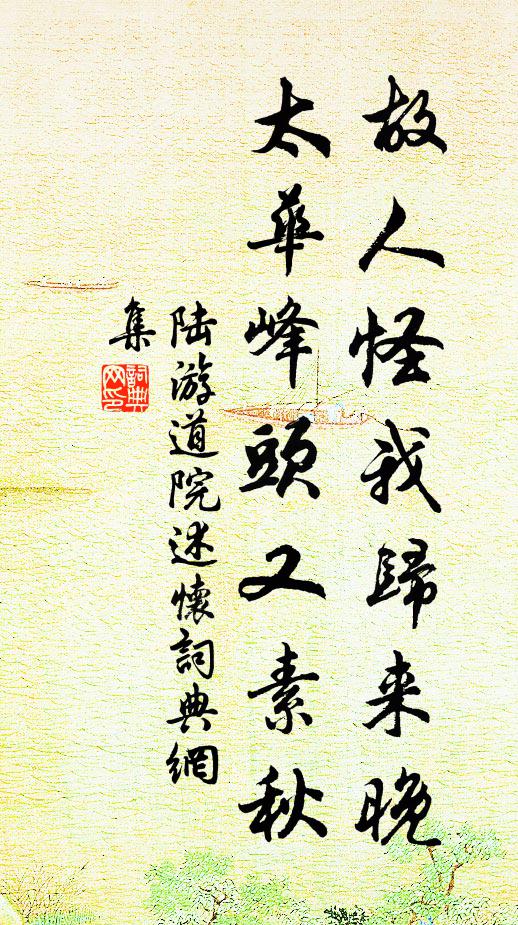 故人怪我歸来晚
太華峰頭又素秋
陸游道院述懷詞典網
集
詞典
网印